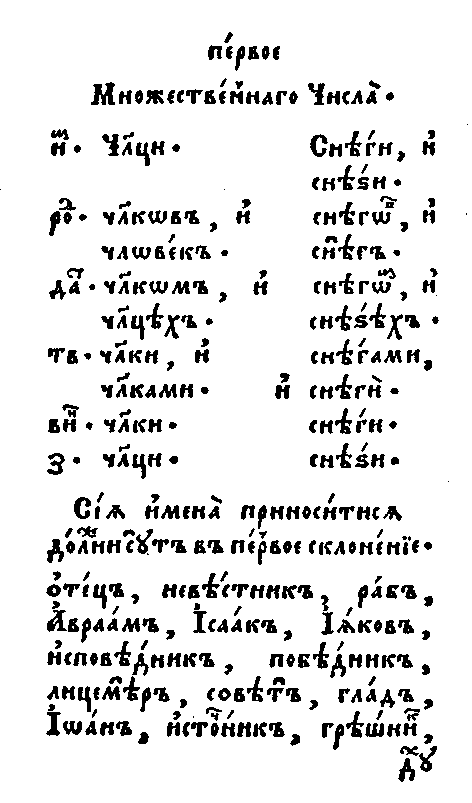 пе́рвое
Мно́жестве́ннаго Числа̀.
и҆м. Чл҃ци. Снѣ́ги, и҆
снѣ́ѕи.
ро́д. чл҃кѡвъ, и҆ снѣ́гѡв, и҆
члѡвѣ́къ. снѣ́гъ.
да́т. чл҃кѡмъ, и҆ снѣ́гѡм, и҆
чл҃цѣхъ. снѣ́ѕѣхъ.
тв. чл҃ки, и҆ снѣ́гами,
чл҃ками. и҆ снѣ́ги.
ви́н. чл҃ки. снѣ́ги.
з. чл҃ци. снѣ́ѕи.
Сі́ѧ и҆мена̀ приноси́тисѧ
до́лжни сꙋ́тъ въ пе́рвое склоне́нїе.
ѻ҆те́цъ, невѣ́стникъ, ра́бъ,
А҆враа́мъ, І҆саа́къ, І҆ѧ́ковъ,
и҆сповѣ́дникъ, побѣ́дникъ,
лицемѣ́ръ, совѣ́тъ, гла́дъ,
І҆ѡа́нъ, и҆сто́чникъ, грѣ́шник,
дꙋ